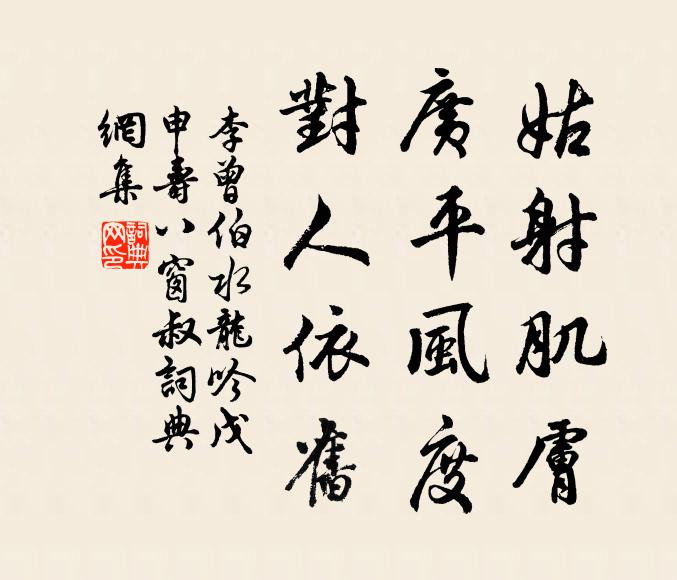 姑射肌膚
廣平風度
對人依舊
李曾伯水龍吟戊
申壽八窗叔詞典
網集
詞典
网印